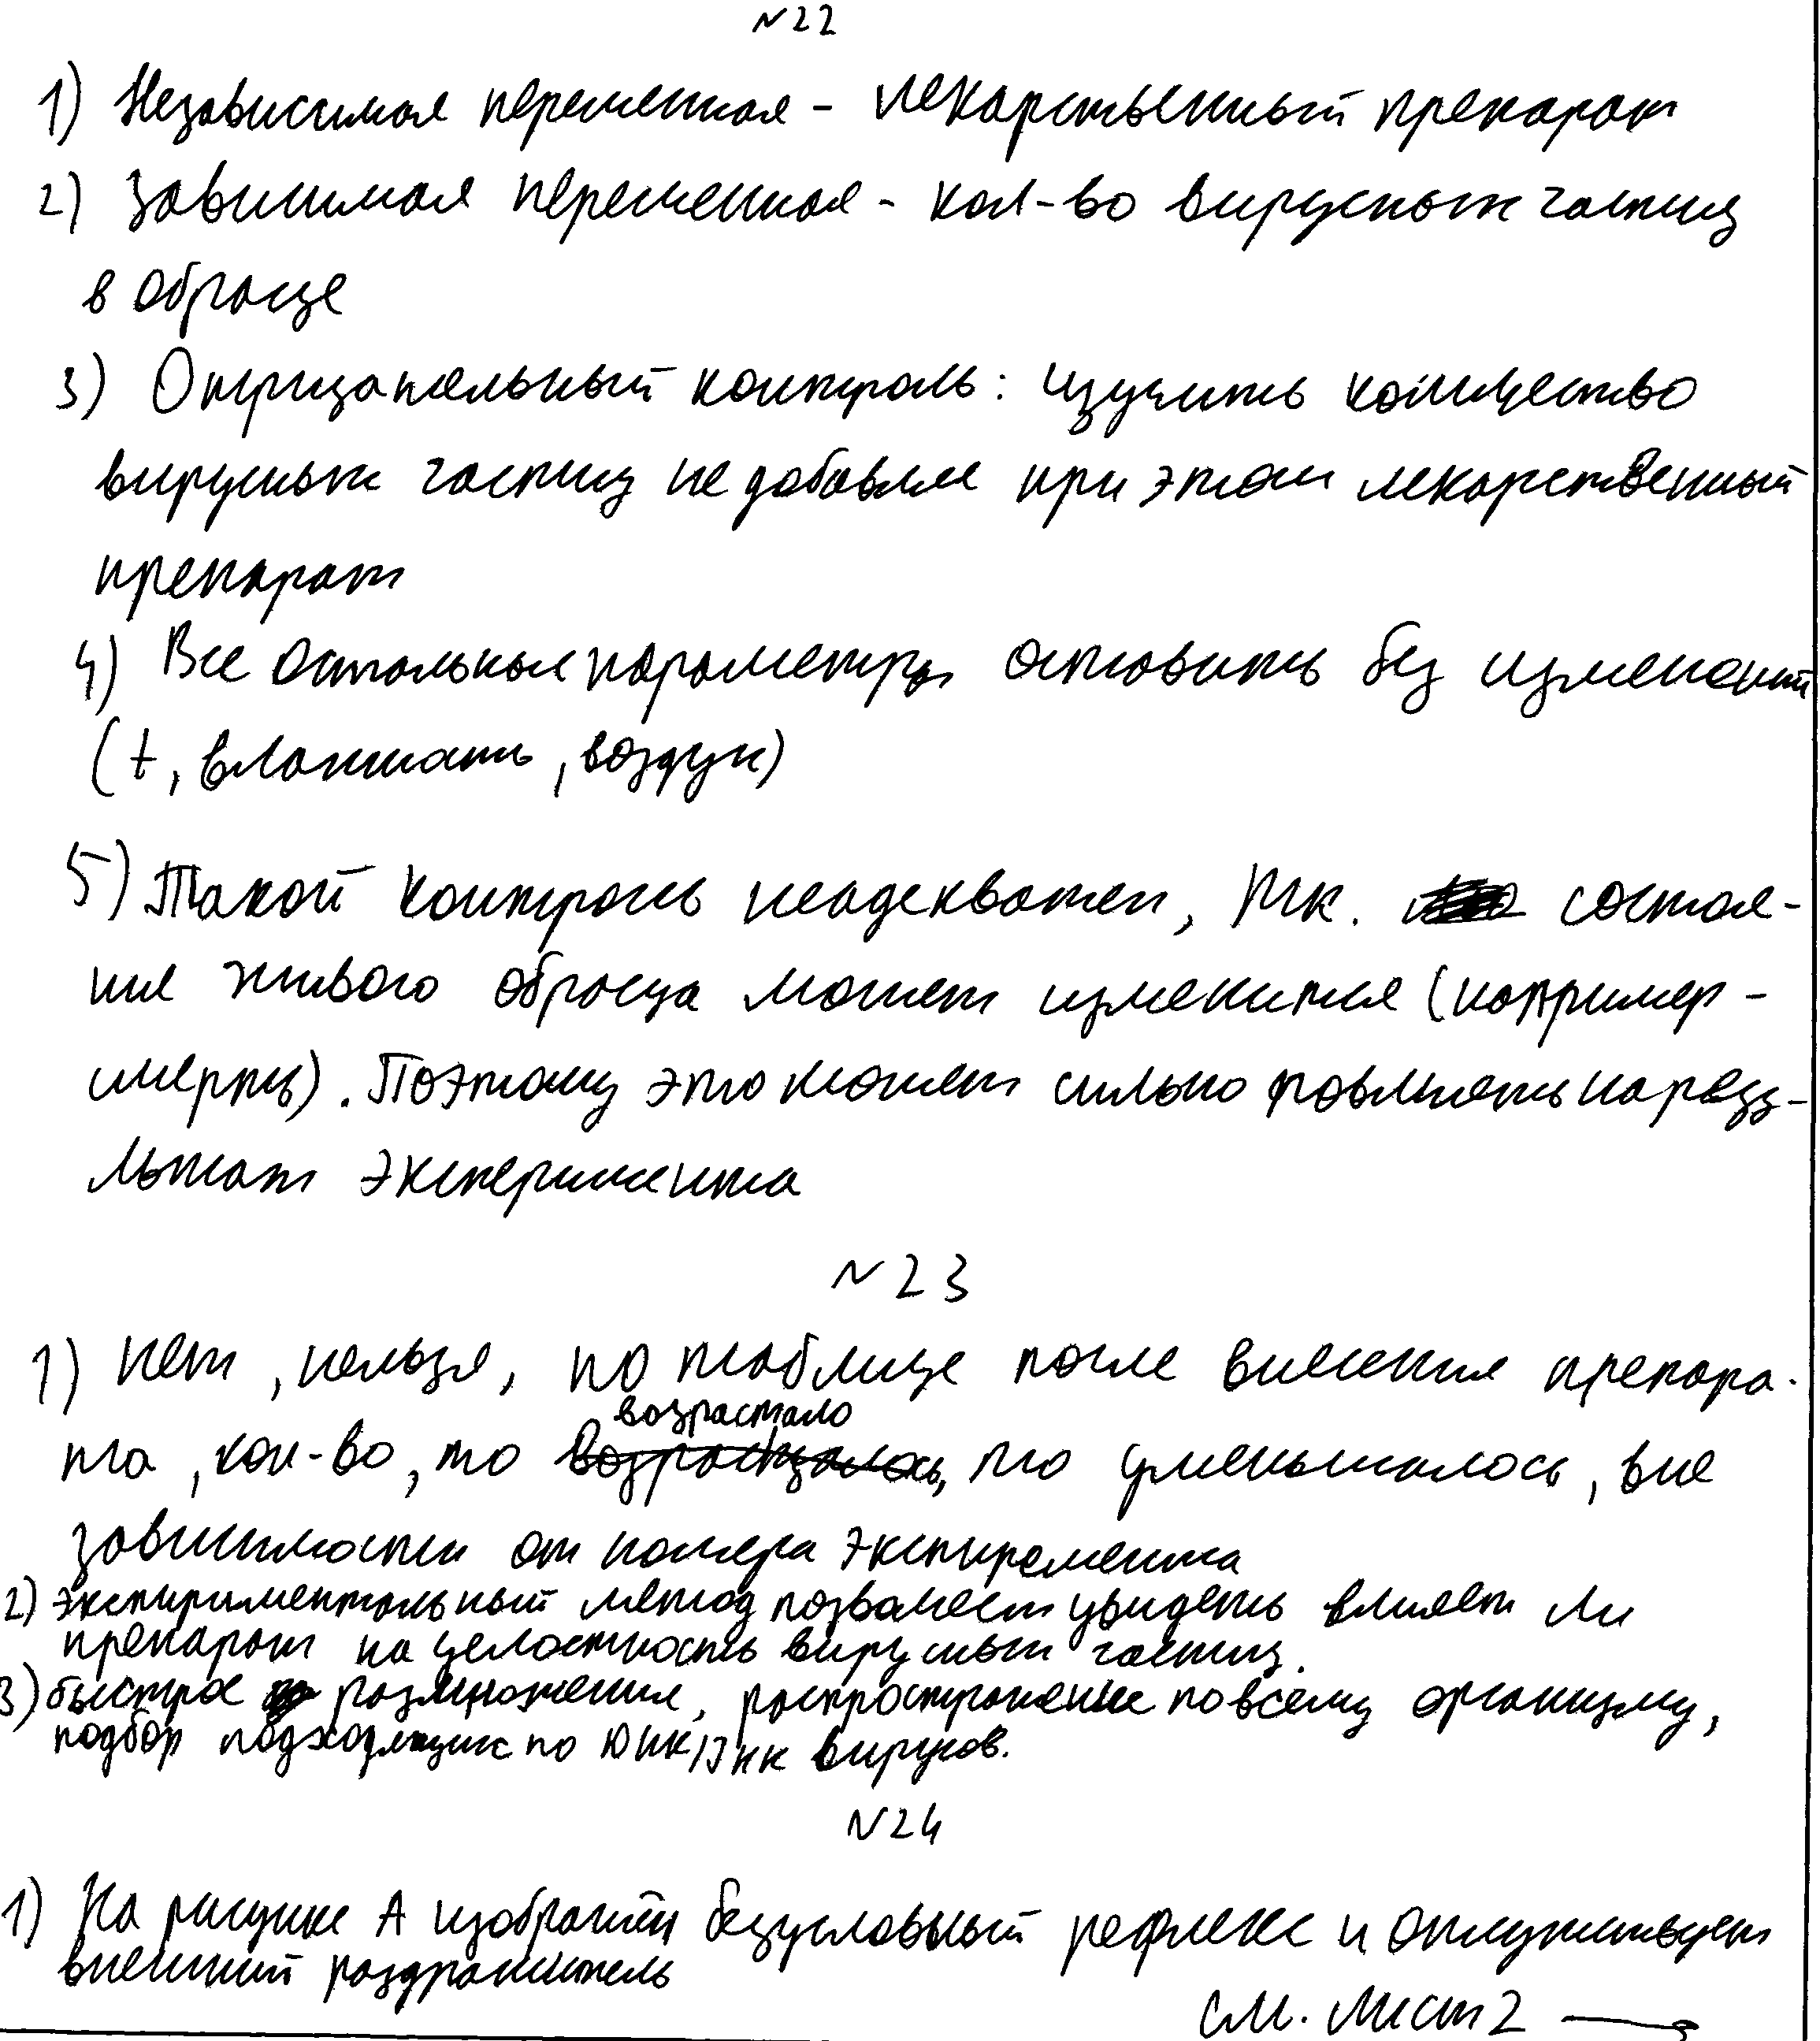 №22
1) Независимая переменная - лекарственный препарат
2) Зависимая переменная - кол-во вирусных частиц
в образце
3) Отрицательный контроль: изучить количество
вирусных частиц не добавляя при этом лекарственный
препарат
4) Все остальные параметры оставить без изменений
(t, влажность, воздух)
5) Такой контроль неадекватен, т.к. состоя-
ние живого образца может изменится (например -
смерть). Поэтому это может сильно повлиять на резу-
льтат эксперимента
№23
1) нет, нельзя, по таблице после внесения препара-
та, кол-во, то возрастало, то уменьшалось, вне
зависимости от номера экспиремента
2) экспириментальный метод позволяет увидеть влияет ли
препарат на целостность вирусных частиц.
3) быстрое размножения, распространение по всему организму,
подбор подходящих по ДНК/РНК вирусов.
№24
1) На рисунке А изображён безусловный рефлекс и отсутствует
внешний раздражитель
см. лист 2